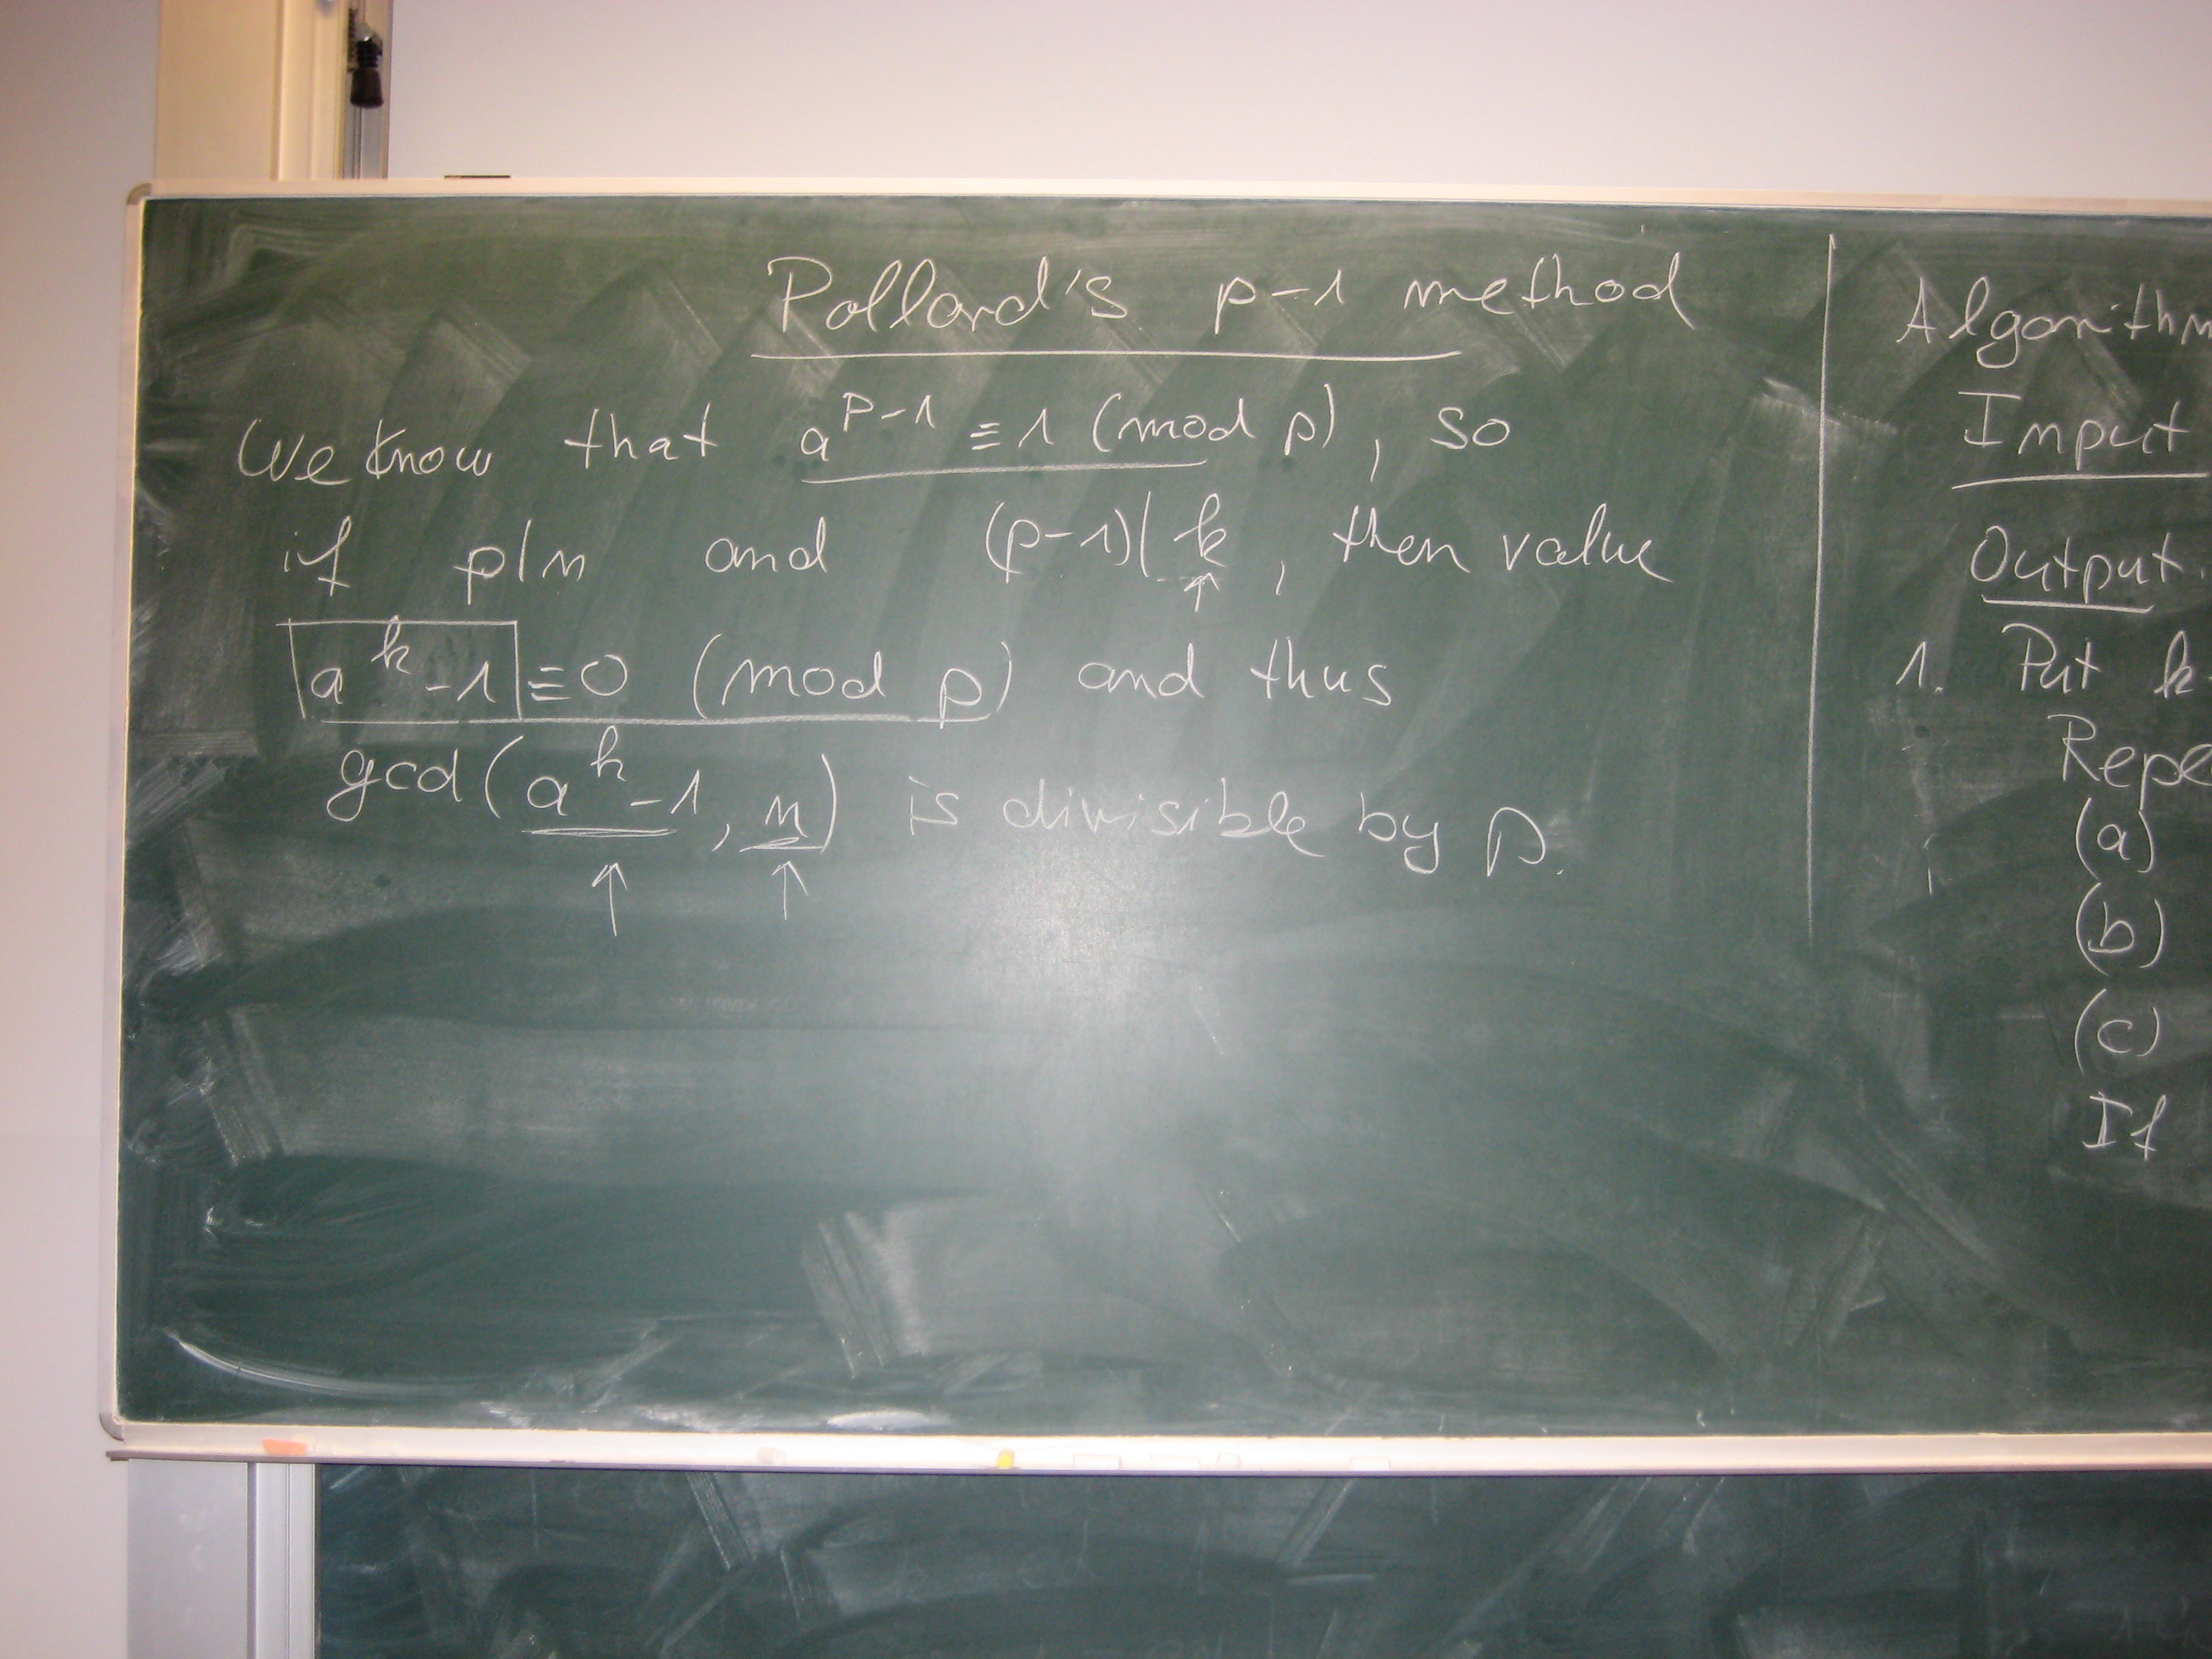 Pollard's p-1 method
We know that a^{p-1} ≡ 1 (mod p), so
if p|n and (p-1)|k, then value
a^k - 1 ≡ 0 (mod p) and thus
gcd(a^k - 1, n) is divisible by p.
Algorithm
Input
Output.
1. Put k
Repe
(a)
(b)
(c)
If